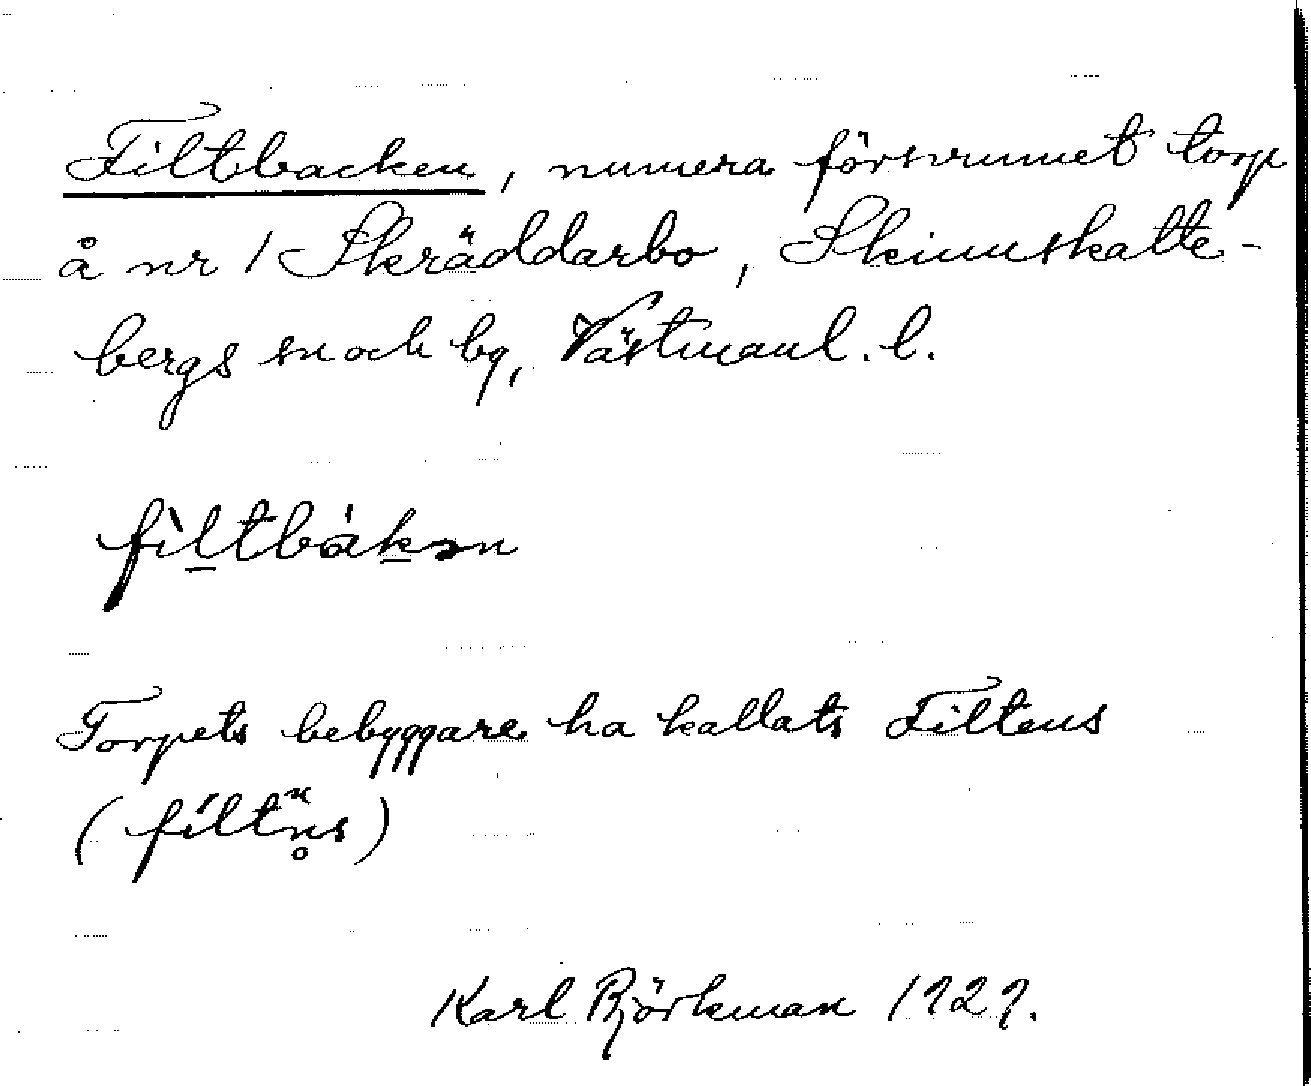 Filtbacken, numera försvunnet torp
å nr 1 Skräddarbo, Skinnskatte-
bergs sn och by, Västmanl. l.
fìl̲tbák̲ən
Torpets bebyggare ha kallats Filtens
(fíltn̥s)
Karl Björkman 1929.